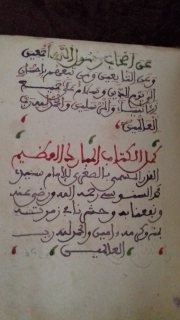 عن أصحاب رسول الله أجمعين
وعن التابعين ومن تبعهم بإحسان
إلى يوم الدين وسلام على جميع
الأنبياء والمرسلين والحمد لله رب
العالمين
كمل الكتاب المبارك العظيم
القدر المسمى بالصغرى للإمام سيدي
السنوسي رحمه الله ورضي عنه
ونفعنا به وحشرنا في زمرته
بمنه وكرمه ءامين والحمد لله رب
العالمين